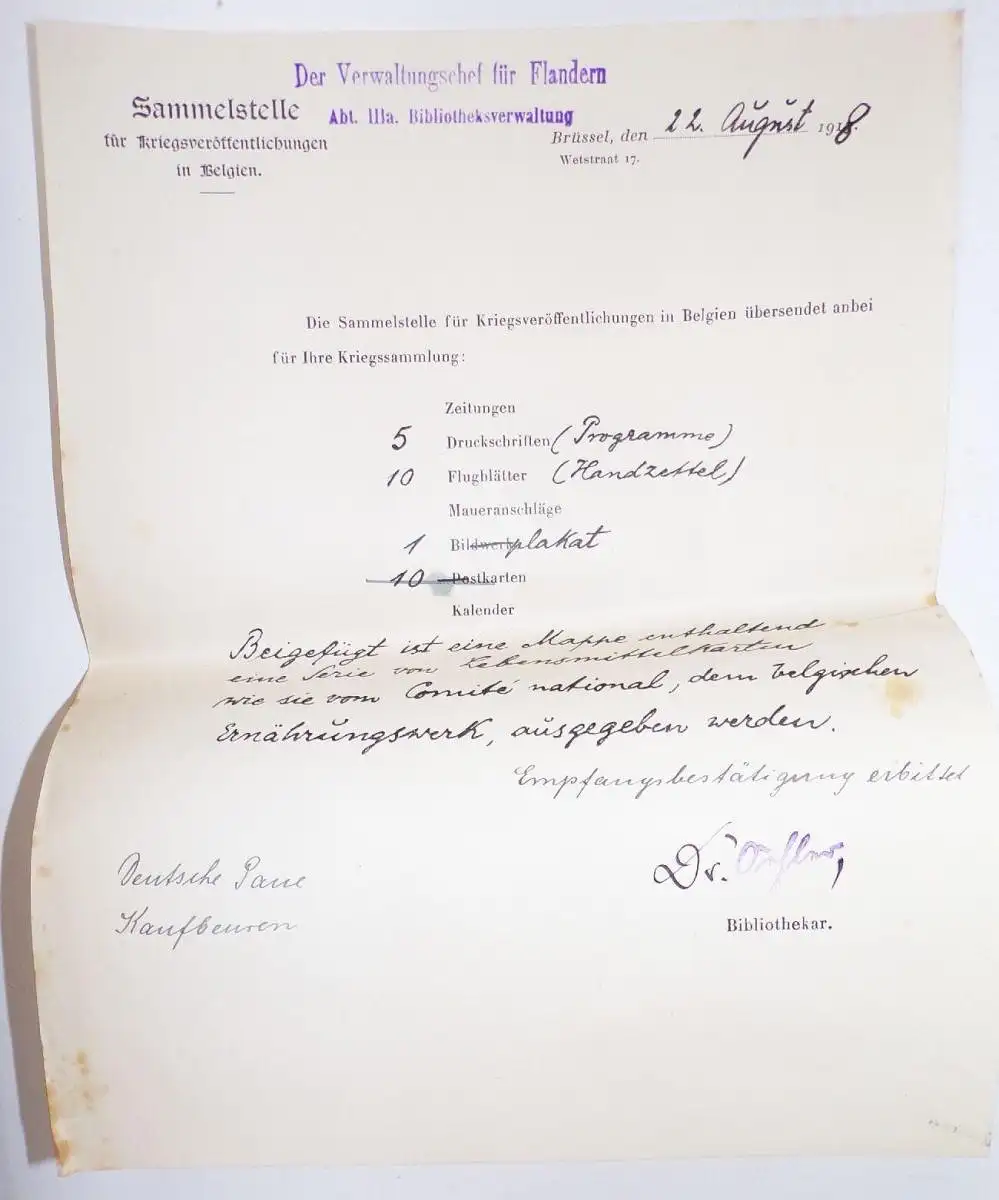 Der Verwaltungschef für Flandern
Abt. IIIa. Bibliotheksverwaltung
Sammelstelle
für Kriegsveröffentlichungen
in Belgien.
Brüssel, den 22. August 1918.
Wetstraat 17.
Die Sammelstelle für Kriegsveröffentlichungen in Belgien übersendet anbei
für Ihre Kriegssammlung:
Zeitungen
5 Druckschriften (Programme)
10 Flugblätter (Handzettel)
Maueranschläge
1 Bildwerk plakat
10 Postkarten
Kalender
Beigefügt ist eine Mappe enthaltend
eine Serie von Lebensmittelkarten
wie sie vom Comité national, dem belgischen
Ernährungswerk, ausgegeben werden.
Empfangsbestätigung erbittet
Dr.
Bibliothekar.
Deutsche
Kaufbeuren